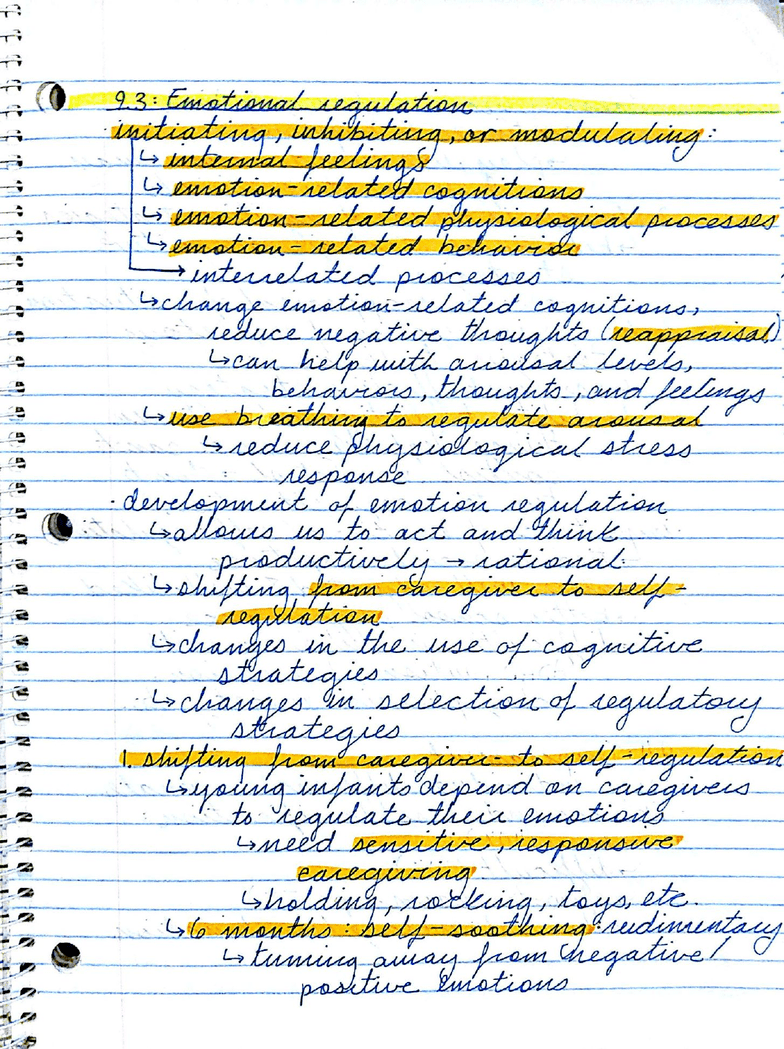 9.3: Emotional regulation
initiating, inhibiting, or modulating:
↳ internal feelings
↳ emotion-related cognitions
↳ emotion-related physiological processes
↳ emotion-related behavior
→ interrelated processes
↳ change emotion-related cognitions,
reduce negative thoughts (reappraisal)
↳ can help with arousal levels,
behaviors, thoughts, and feelings
↳ use breathing to regulate arousal
↳ reduce physiological stress
response
· development of emotion regulation
↳ allows us to act and think
productively → rational
↳ shifting from caregiver to self-
regulation
↳ changes in the use of cognitive
strategies
↳ changes in selection of regulatory
strategies
1. shifting from caregiver- to self-regulation
↳ young infants depend on caregivers
to regulate their emotions
↳ need sensitive, responsive
caregiving
↳ holding, rocking, toys, etc.
↳ 6 months: self-soothing: rudimentary
↳ turning away from negative/
positive emotions